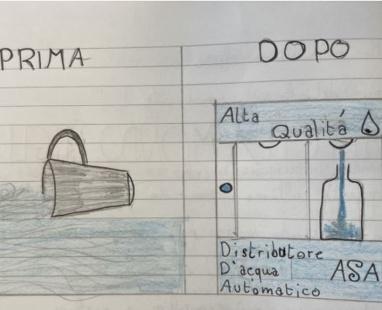 PRIMA
DOPO
Alta
Qualitá
Distributore
D'acqua
Automatico
ASA